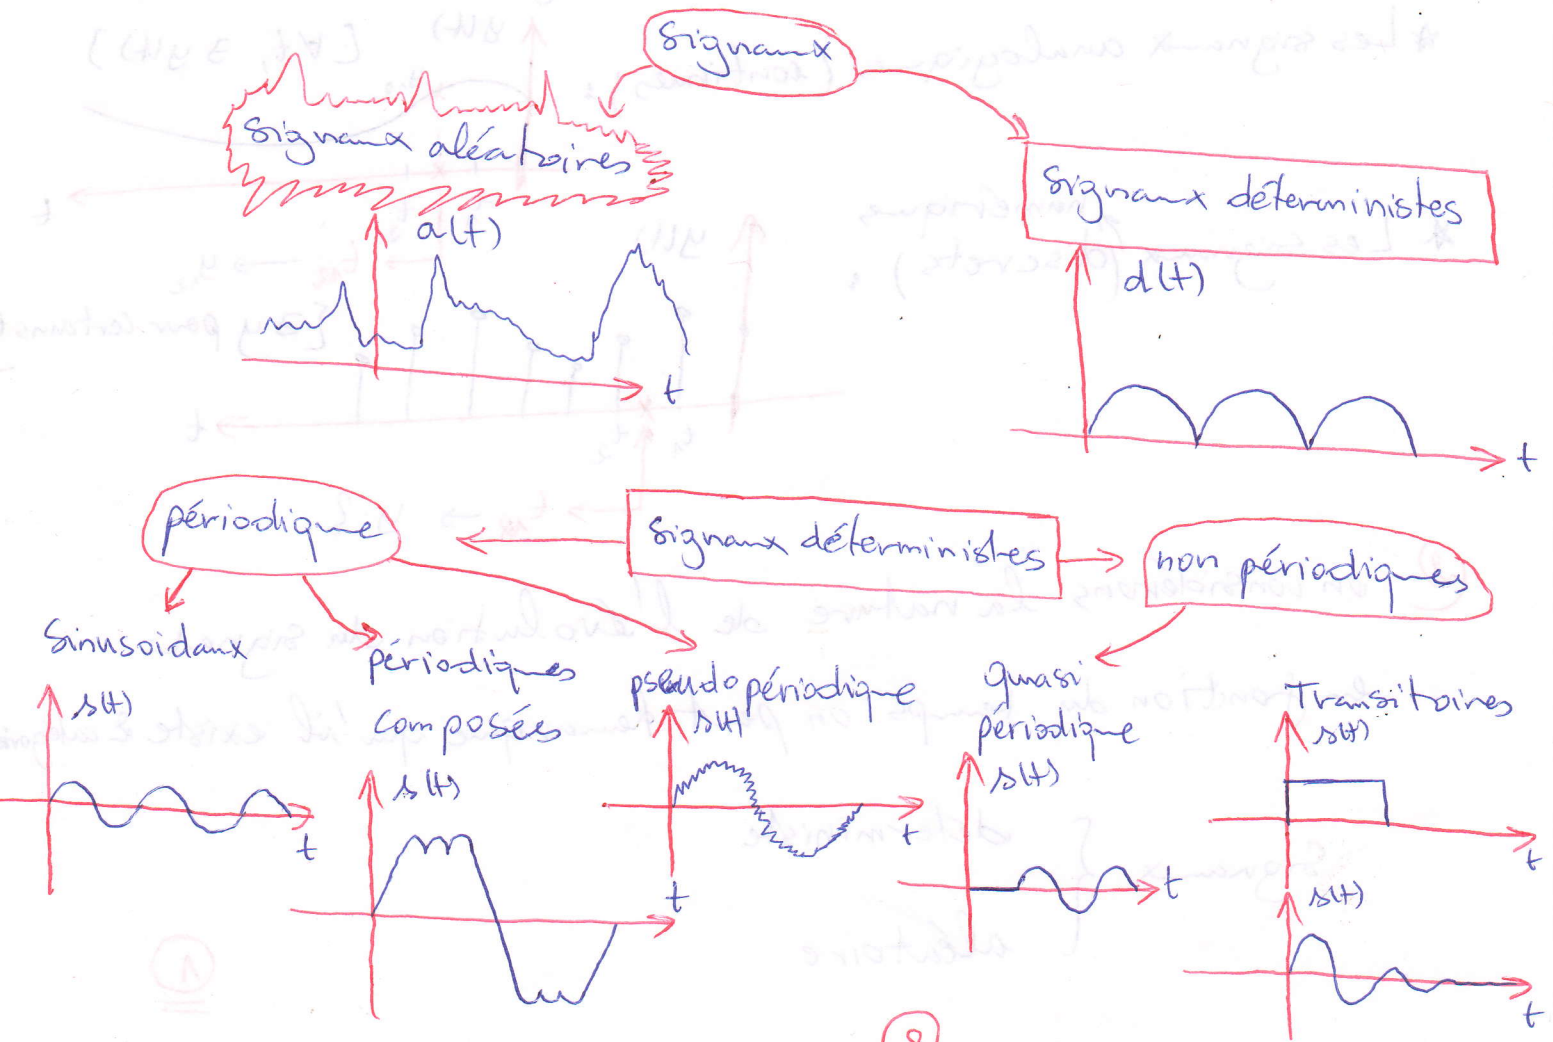 Signaux
Signaux aléatoires
Signaux déterministes
a(t)
t
d(t)
t
périodique
Signaux déterministes
non périodiques
Sinusoidaux
périodiques
composées
pseudo périodique
quasi
périodique
Transitoires
s(t)
t
s(t)
t
s(t)
t
s(t)
t
s(t)
t
s(t)
t